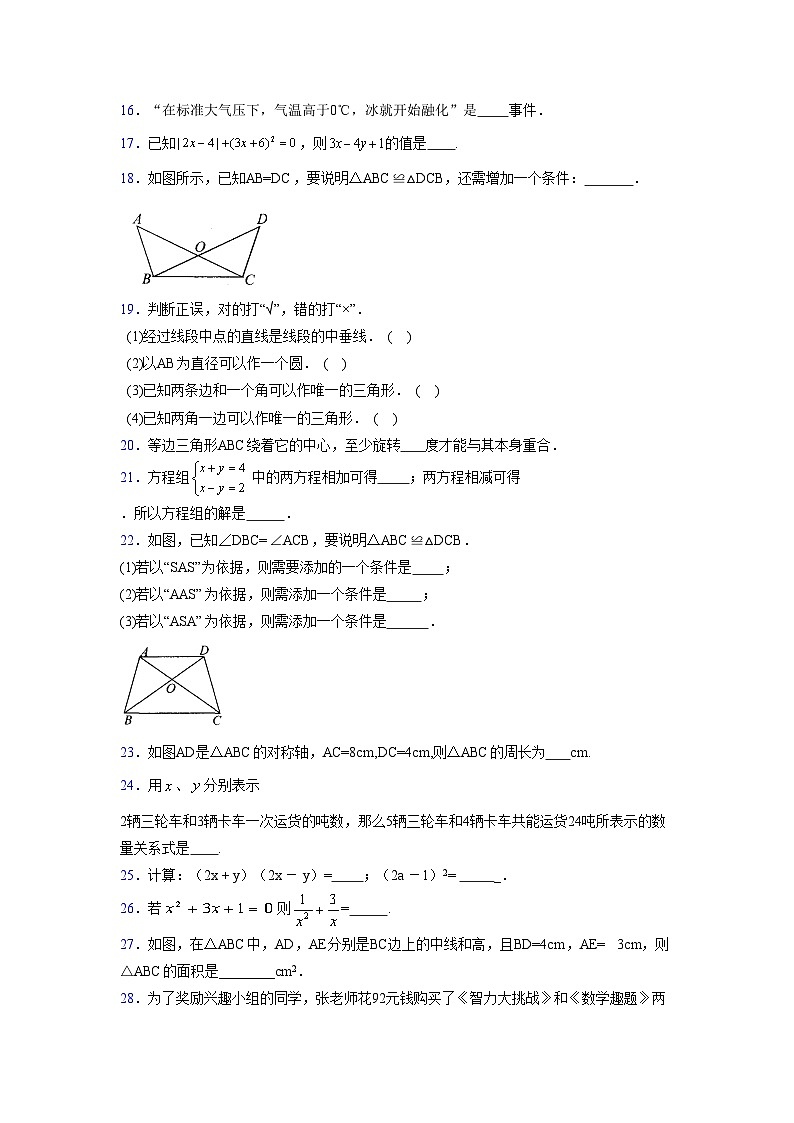 16．“在标准大气压下，气温高于0℃，冰就开始融化”是_____事件．
17．已知|2x－4|+(3x+6)²＝0，则3x－4y+1的值是____．
18．如图所示，已知AB=DC，要说明△ABC≌△DCB，还需增加一个条件：_______．
A D
O
B C
19．判断正误，对的打“√”，错的打“×”．
(1)经过线段中点的直线是线段的中垂线． ( )
(2)以AB为直径可以作一个圆． ( )
(3)已知两条边和一个角可以作唯一的三角形． ( )
(4)已知两角一边可以作唯一的三角形． ( )
20．等边三角形ABC绕着它的中心，至少旋转____度才能与其本身重合．
21．方程组{x+y＝4 x－y＝2 中的两方程相加可得_____；两方程相减可得
．所以方程组的解是______．
22．如图，已知∠DBC=∠ACB，要说明△ABC≌△DCB．
(1)若以“SAS”为依据，则需要添加的一个条件是_____；
(2)若以“AAS”为依据，则需添加一个条件是_____；
(3)若以“ASA”为依据，则需添加一个条件是______．
A D
O
B C
23．如图AD是△ABC的对称轴，AC=8cm,DC=4cm,则△ABC的周长为____cm.
24．用x、y分别表示
2辆三轮车和3辆卡车一次运货的吨数，那么5辆三轮车和4辆卡车共能运货24吨所表示的数
量关系式是____.
25．计算：（2x + y）（2x － y）=_____；（2a －1）²= ______．
26．若x²＋3x＋1＝0则1/x²+3/x=______.
27．如图，在△ABC中，AD，AE分别是BC边上的中线和高，且BD=4cm，AE= 3cm，则
△ABC的面积是________cm²．
28．为了奖励兴趣小组的同学，张老师花92元钱购买了《智力大挑战》和《数学趣题》两